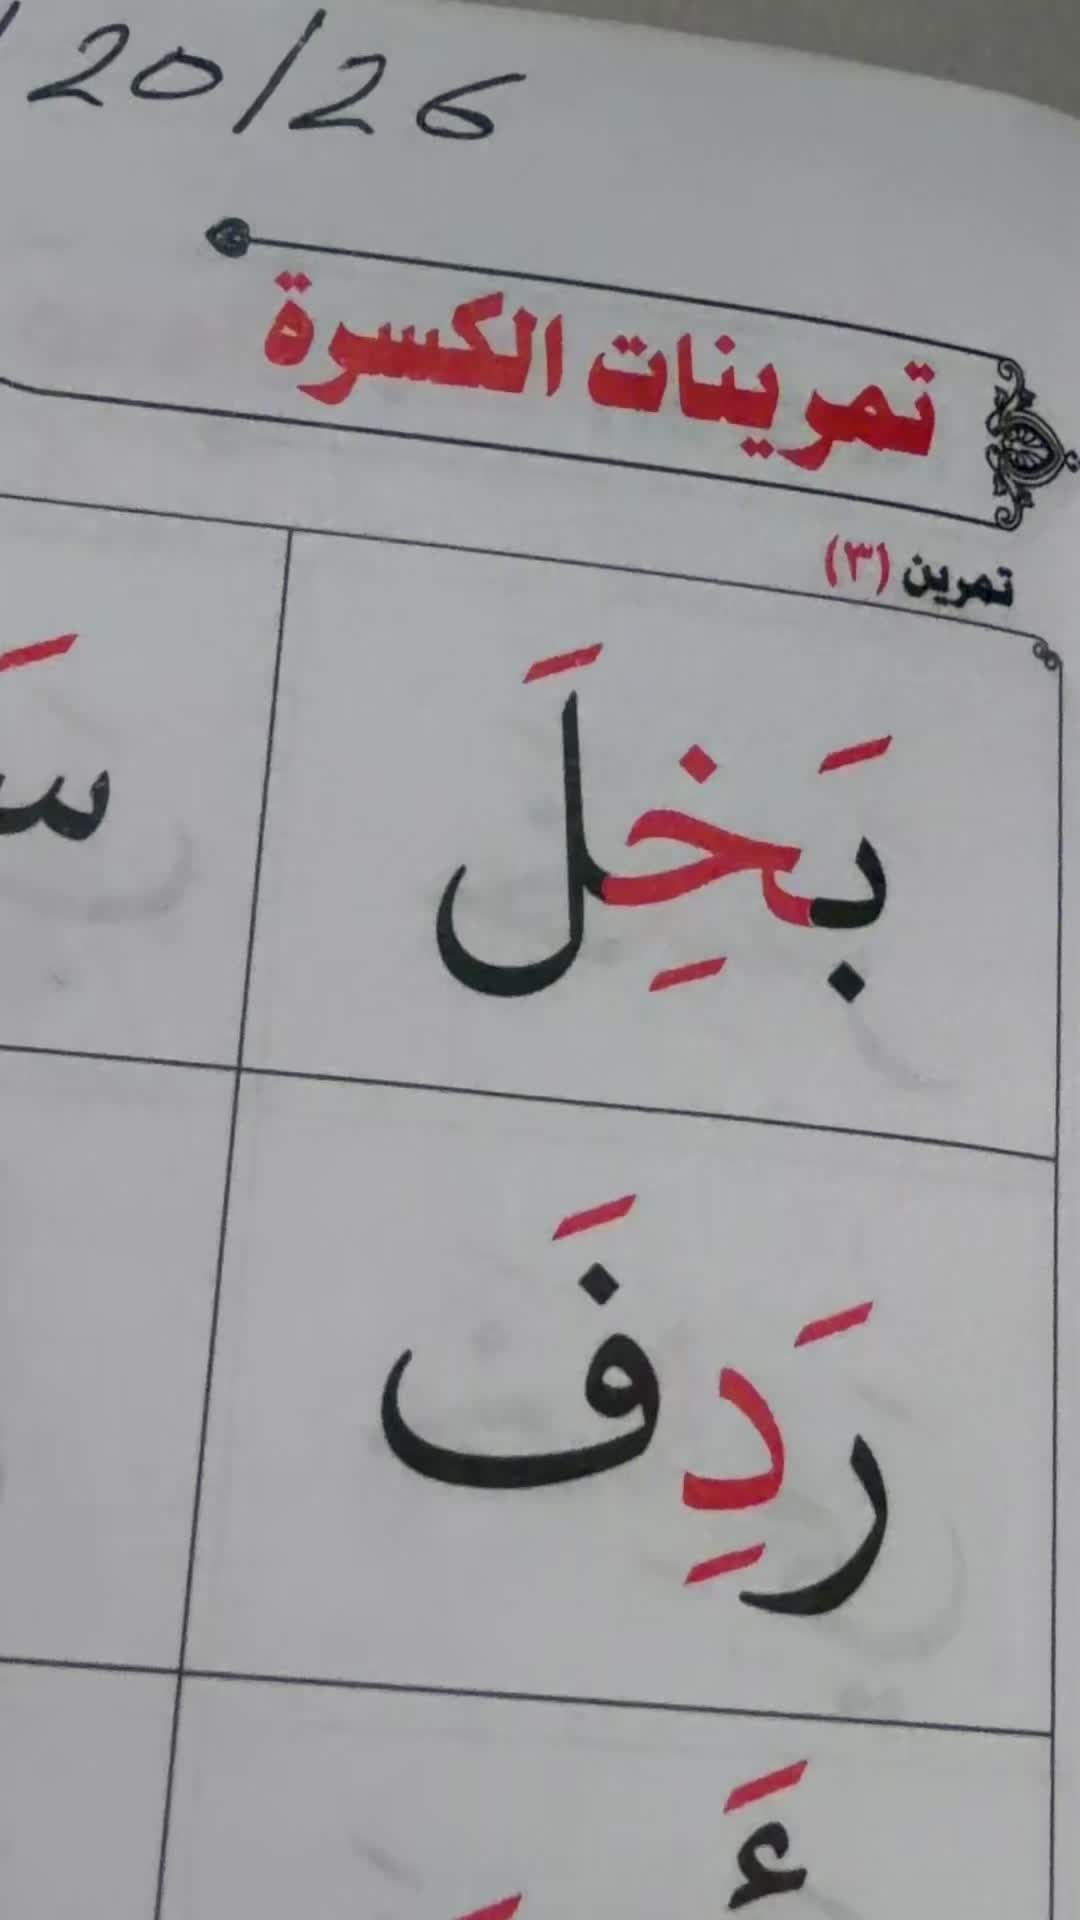 /20/26
تمرينات الكسرة
تمرين (٣)
بَخِلَ
رَدِفَ